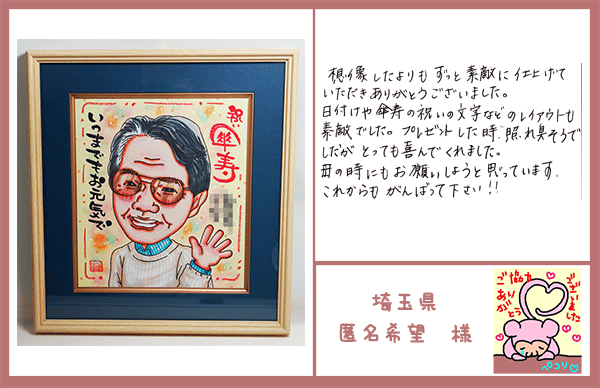 祝
傘寿
いつまでもお元気で
想像したよりもずっと素敵に仕上げて
いただきありがとうございました。
日付けや傘寿の祝いの文字などのレイアウトも
素敵でした。プレゼントした時、照れ臭そうで
したがとっても喜んでくれました。
母の時にもお願いしようと思っています。
これからもがんばって下さい!!
埼玉県
匿名希望 様
ご協力
ありがとう
ございました
ペコリ